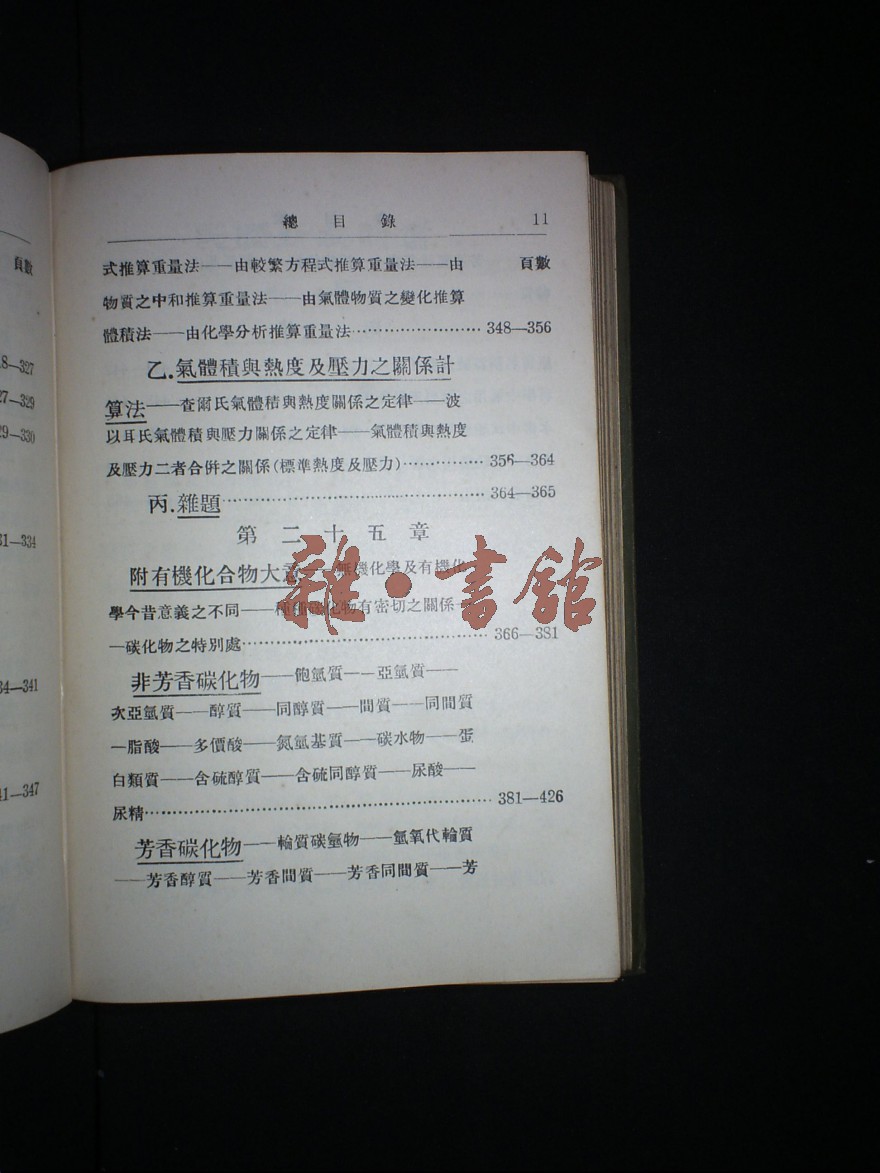 頁數
18—327
27—329
29—330
31—334
34—341
41—347
總目錄 11
式推算重量法——由較繁方程式推算重量法——由 頁數
物質之中和推算重量法——由氣體物質之變化推算
體積法——由化學分析推算重量法…………………348—356
乙.氣體積與熱度及壓力之關係計
算法——查爾氏氣體積與熱度關係之定律——波
以耳氏氣體積與壓力關係之定律——氣體積與熱度
及壓力二者合併之關係(標準熱度及壓力)…………356—364
丙.雜題……………………………………364—365
第二十五章
附有機化合物大意——無機化學及有機化
學今昔意義之不同——種 化物有密切之關係—
—碳化物之特別處……………………………366—381
非芳香碳化物——飽氫質——亞氫質——
次亞氫質——醇質——同醇質——間質——同間質
—脂酸——多價酸——氮氫基質——碳水物——蛋
白類質——含硫醇質——含硫同醇質——尿酸——
尿精……………………………………………381—426
芳香碳化物——輪質碳氫物——氫氧代輪質
——芳香醇質——芳香間質——芳香同間質——芳
雜·書館